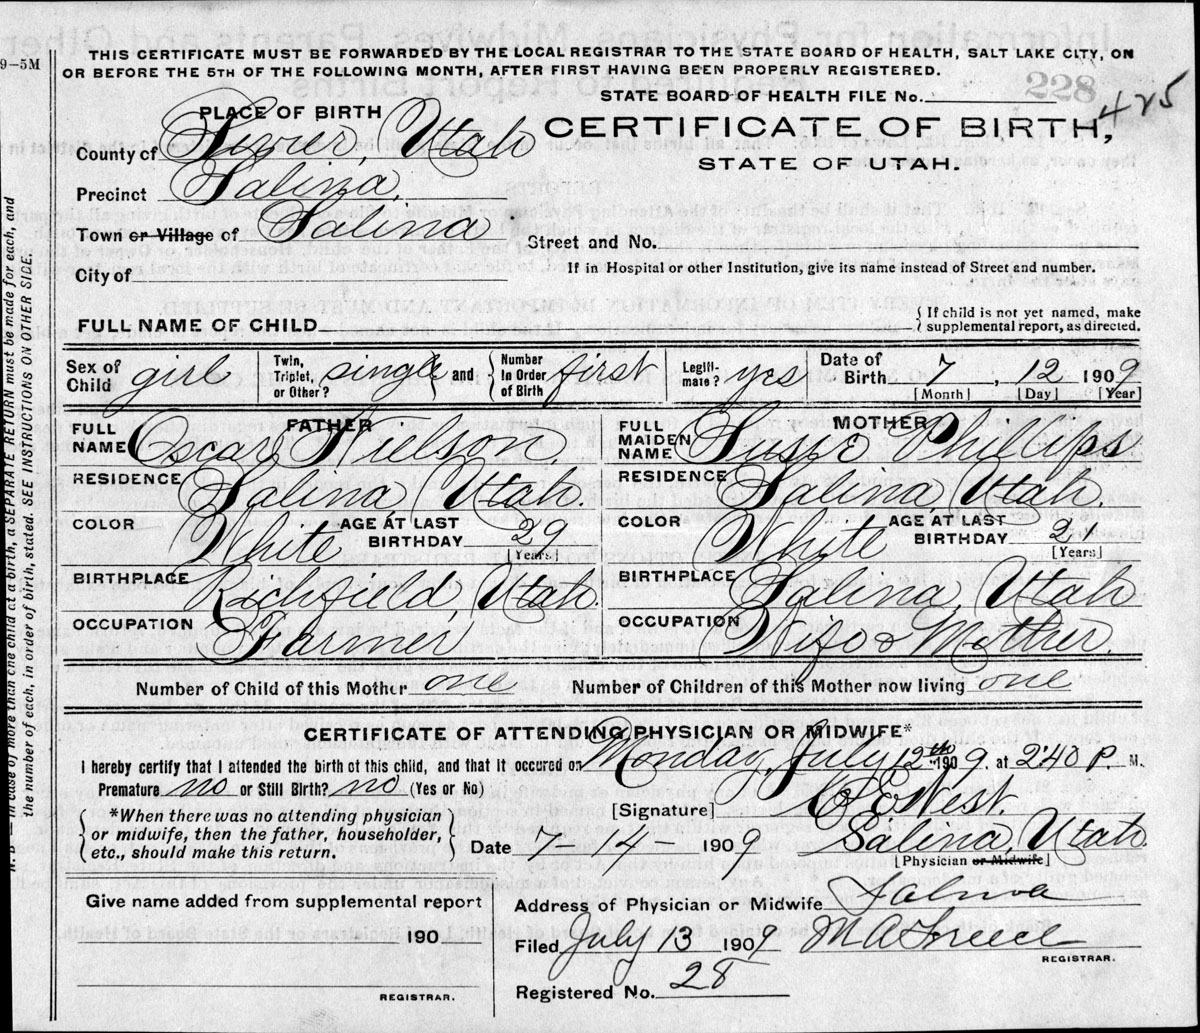 9-5M
THIS CERTIFICATE MUST BE FORWARDED BY THE LOCAL REGISTRAR TO THE STATE BOARD OF HEALTH, SALT LAKE CITY, ON
OR BEFORE THE 5TH OF THE FOLLOWING MONTH, AFTER FIRST HAVING BEEN PROPERLY REGISTERED.
228
STATE BOARD OF HEALTH FILE No. 425
PLACE OF BIRTH
CERTIFICATE OF BIRTH,
STATE OF UTAH.
County of Sevier, Utah
Precinct Salina,
Town or Village of Salina
Street and No.
City of
If in Hospital or other Institution, give its name instead of Street and number.
FULL NAME OF CHILD
{If child is not yet named, make
supplemental report, as directed.
Sex of Child girl Twin, Triplet, or Other? single and Number in Order of Birth first Legiti- mate? yes Date of Birth 7, 12 1909
[Month] [Day] [Year]
FATHER
FULL NAME Oscar Nielson.
RESIDENCE Salina, Utah.
COLOR White AGE AT LAST BIRTHDAY 29 [Years]
BIRTHPLACE Richfield, Utah.
OCCUPATION Farmer
MOTHER
FULL MAIDEN NAME Susie Phillips
RESIDENCE Salina, Utah
COLOR Whyte AGE AT LAST BIRTHDAY 21 [Years]
BIRTHPLACE Salina, Utah
OCCUPATION Wife & Mother.
Number of Child of this Mother one Number of Children of this Mother now living one
CERTIFICATE OF ATTENDING PHYSICIAN OR MIDWIFE*
I hereby certify that I attended the birth of this child, and that it occured on Monday, July 12th 1909. at 2:40 P. M.
Premature no or Still Birth? no (Yes or No)
[Signature] West.
*When there was no attending physician
or midwife, then the father, householder,
etc., should make this return.
Date 7-14- 1909 Salina, Utah.
[Physician or Midwife]
Give name added from supplemental report
190
REGISTRAR.
Address of Physician or Midwife Salina
Filed July 13 1909
REGISTRAR.
Registered No. 28
N. B.—In case of more than one child at a birth, a SEPARATE RETURN must be made for each, and
the number of each, in order of birth, stated. SEE INSTRUCTIONS ON OTHER SIDE.